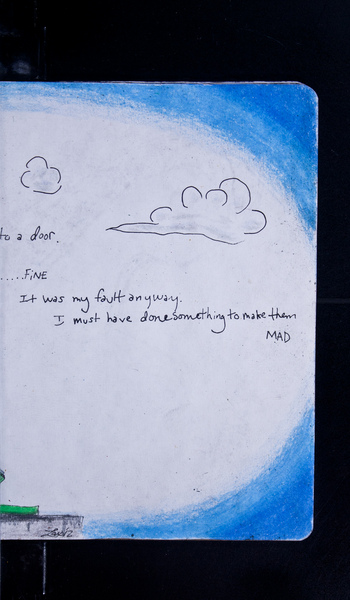 to a door.
.....FINE
It was my fault anyway.
I must have done something to make them
MAD